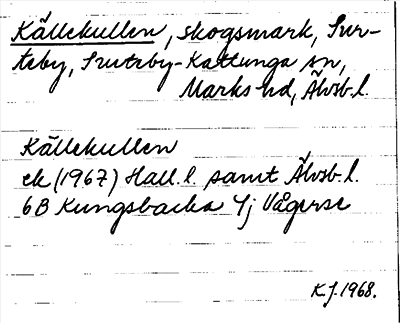 Källekullen, skogsmark, Sur-
teby, Surteby-Kattunga sn,
Marks hd, Älvsb. l.
Källekullen
ek (1967) Hall. l. samt Älvsb. l.
6B Kungsbacka 4j Vågerse
KJ. 1968.